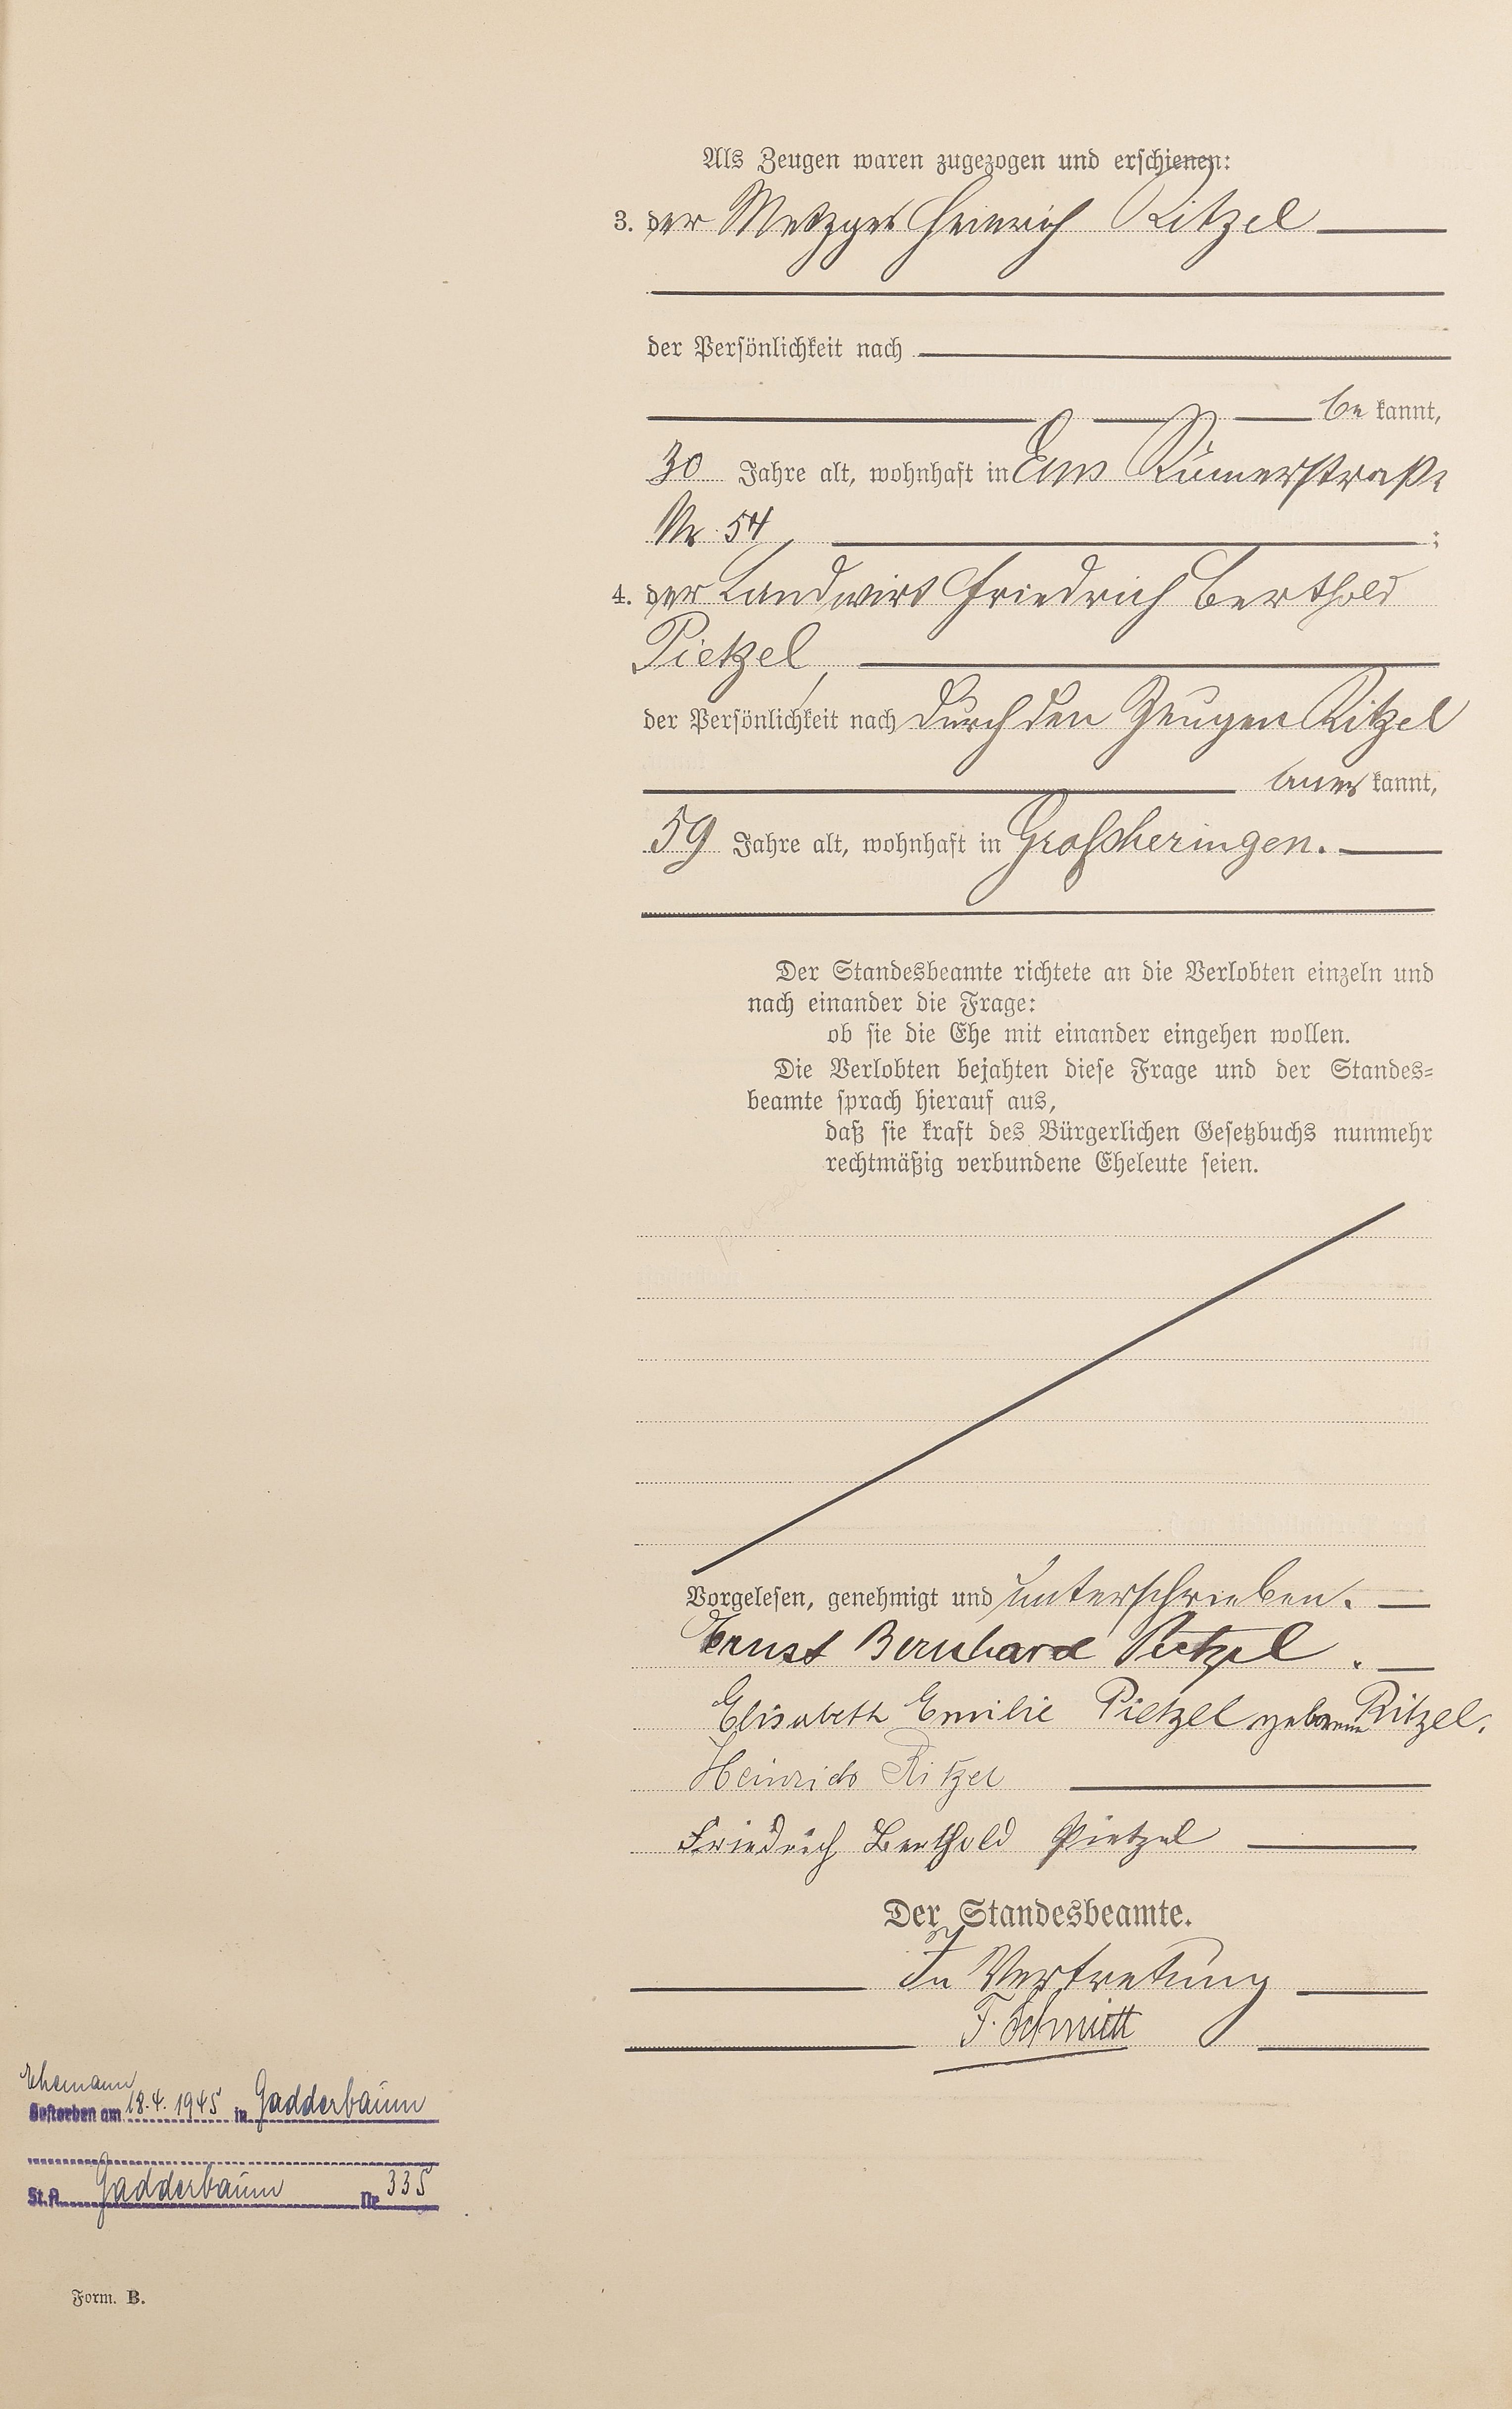 Als Zeugen waren zugezogen und erschienen:
3. der Metzger Heinrich Ritzel
der Persönlichkeit nach
be kannt,
30 Jahre alt, wohnhaft in Ems Römerstraße
Nr. 54,
;
4. der Landwirt Friedrich Berthold
Pietzel,
der Persönlichkeit nach durch den Zeugen Ritzel
aner kannt,
59 Jahre alt, wohnhaft in Großheringen.
Der Standesbeamte richtete an die Verlobten einzeln und
nach einander die Frage:
ob sie die Ehe mit einander eingehen wollen.
Die Verlobten bejahten diese Frage und der Standes=
beamte sprach hierauf aus,
daß sie kraft des Bürgerlichen Gesetzbuchs nunmehr
rechtmäßig verbundene Eheleute seien.
Vorgelesen, genehmigt und unterschrieben.
Ernst Bernhard Pietzel.
Elisabeth Emilie Pietzel geborene Ritzel.
Heinrich Ritzel
Friedrich Berthold Pietzel
Der Standesbeamte.
In Vertretung
F. Schmitt
Ehemann
Gestorben am 18.4.1945 in Gadderbaum
St.A. Gadderbaum Nr 335
Form. B.